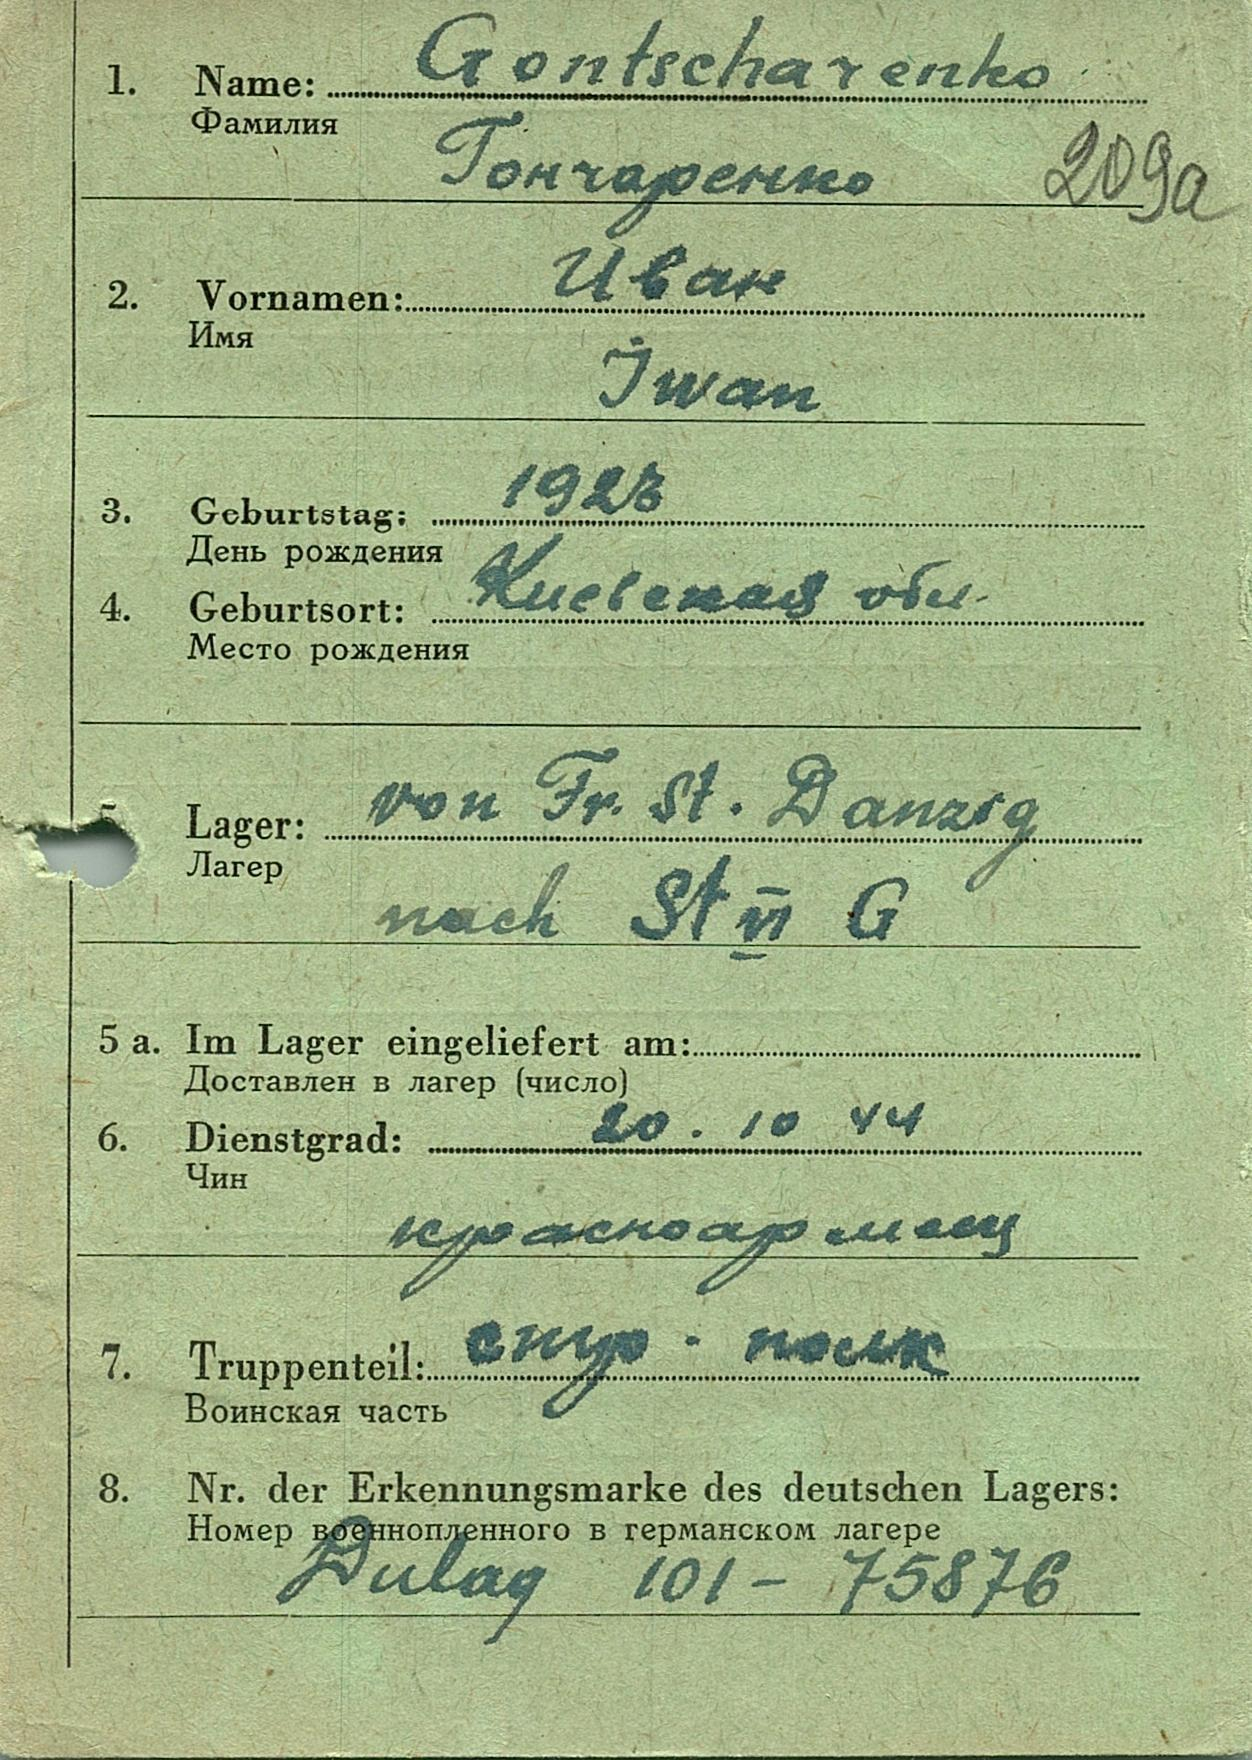 1. Name: Gontscharenko
Фамилия
Гончаренко 209a
2. Vornamen: Иван
Имя
Iwan
3. Geburtstag: 1923
День рождения
4. Geburtsort: Киевская обл.
Место рождения
5 Lager: von Fr. St. Danzig
Лагер
nach St VI G
5 a. Im Lager eingeliefert am:
Доставлен в лагер (число)
6. Dienstgrad: 20. 10 44
Чин
красноармеец
7. Truppenteil: стр. полк
Воинская часть
8. Nr. der Erkennungsmarke des deutschen Lagers:
Номер военнопленного в германском лагере
Dulag 101 - 75876